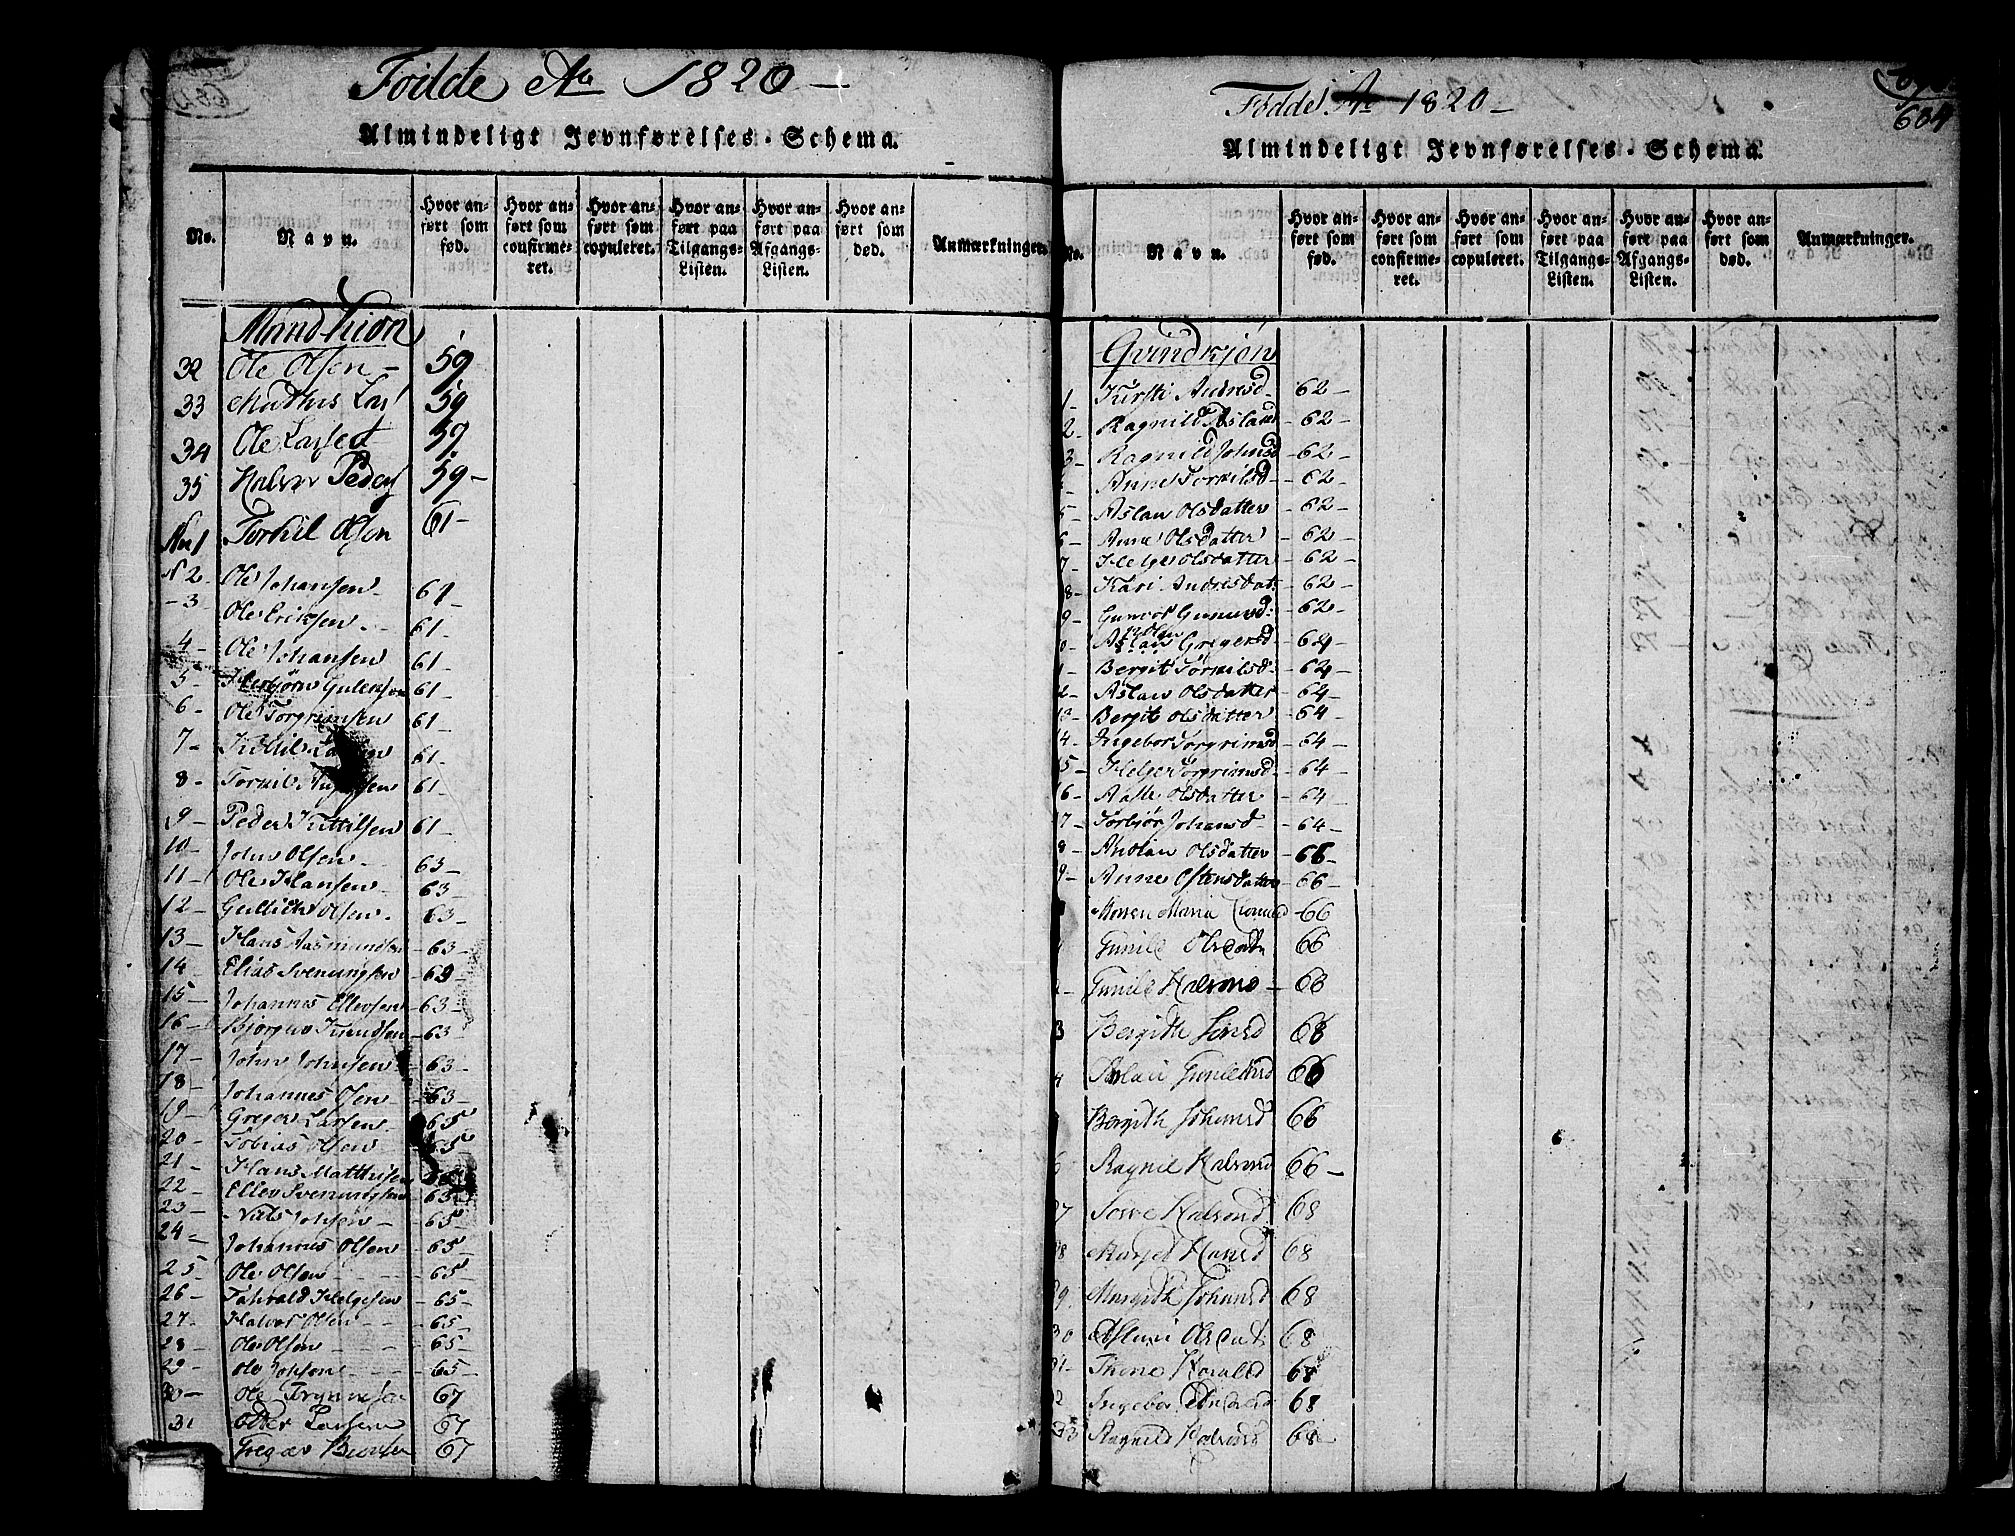 Födde Ao 1820 —
Almindeligt Jevnførelses-Schema.
No.
Navn.
Hvor anført som fød.
Hvor anført som confirmeret.
Hvor anført som copuleret.
Hvor anført paa Tilgangs-Listen.
Hvor anført paa Afgangs-Listen.
Hvor anført som død.
Anmærkninger.
Mandkiøn
32 Ole Olsen — 59
33 Mathis Lars 59
34 Ole Larsen 57
35 Halvor Peders 59 —
No 1 Torkil Olsen 61 —
N 2 Ole Johansen 61 —
— 3 Ole Eriksen 61 —
4 — Ole Johansen 61 —
5 — Herbjörn Gulleksen 61 —
6 — Ole Torgrimsen 61 —
7 — Kittil Larsen 61 —
8 — Torkil 61 —
9 — Peder Kittilsen 61 —
10 — John Olsen — 63 —
11 — Ole Hansen — 63 —
12 — Gullich Olsen — 63 —
13 — Hans Aasmundsen — 63 —
14 — Elias Svenungsen — 63 —
15 — Johannes Ellevsen — 63 —
16 — Bjørguv Knudsen — 63 —
17 — John Johnsen — 63 —
18 — Johannes Olsen — 63 —
19 — Greger Larsen — 65
20 — Tobias Olsen — 65
21 — Hans Mathisen
22 — Ellev Svenungsen 65 —
23 — Niels Johsen — 65 —
24 — Johannes Olsen — 65 —
25 — Ole Olsen — 65 —
26 — Tarald Helgesen — 65 —
27 — Halvor Olsen — 65 —
28 — Ole Olsen — 65 —
29 — Ole Johsen — 65 —
30 — Ole 67
31 Larsen 67
Gregar 67
Födde Ao 1820 —
604
Almindeligt Jevnførelses-Schema.
No.
Navn.
Hvor anført som fød.
Hvor anført som confirmeret.
Hvor anført som copuleret.
Hvor anført paa Tilgangs-Listen.
Hvor anført paa Afgangs-Listen.
Hvor anført som død.
Anmærkninger.
Qvindkjön
1 — Kirsti Andresd. 62 —
2 — Ragnild Aslaksd — 62 —
3 — Ragnild Johnsd — 62 —
Anne Torkilsd — 62 —
5 — Aslau Olsdatter — 62 —
6 — Anne Olsdatter — 62 —
7 — Helge Olsdatter — 62 —
8 — Kari Andresdatr — 62 —
9 — Gunvor Gunmundsd: — 62 —
0 — Aslau Gregersd — 64 —
1 — Bergit Torkilsd: — 64 —
2 — Aslau Olsdatter — 64 —
13 — Bergit Olsdatter — 64 —
14 — Ingebor Torgrimsd — 64 —
15 — Helge Torgrimsd — 64 —
16 — Aasle Olsdatter — 64 —
17 — Torbiør Johansd — 64 —
8 — Anolau Olsdatter — 66 —
9 — Anne Ostensdatter — 66 —
Maren Maria — 66
Gunild Olsdatr 66
Gunild Halvorsd — 66
3 Bergith 68
4 Aslau 66
Bergith Johansd 66
6 Ragnil Halvorsd 66 —
27 Halvorsd 68
28 Margit Hansd 68
29 Margith Johansd 68
30 Aslau Olsdatr 68
31 — Thone Haralsd 68
2 Ingebor 68
33 Ragnild Halvorsd 68